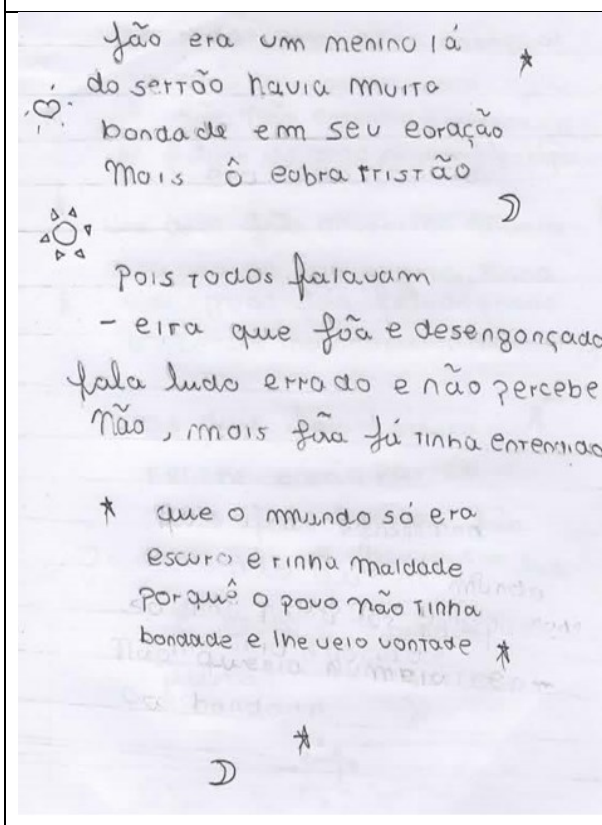 Jão era um menino lá
do sertão havia muito
bondade em seu coração
Mais ô cabra tristão
Pois todos falavam
- eita que Jão e desengonçado
fala tudo errado e não percebe
não, mais Jão já tinha entendido
que o mundo só era
escuro e tinha maldade
porquê o povo não tinha
bondade e lhe veio vontade